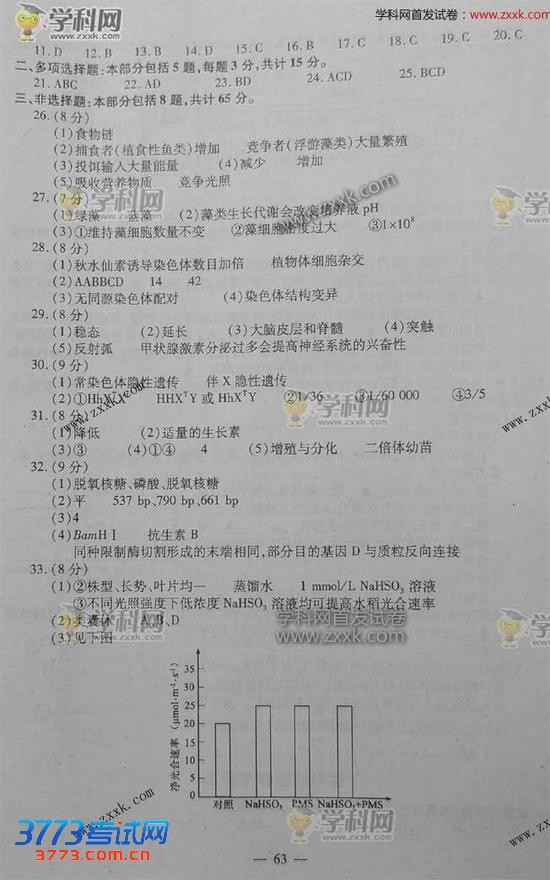 学科网
www.zxxk.com
学科网首发试卷：www.zxxk.com
11. D 12. B 13. B 14. D 15. C 16. B 17. C 18. C 19. C 20. C
二、多项选择题:本部分包括 5 题,每题 3 分,共计 15 分。
21. ABC 22. AD 23. BD 24. ACD 25. BCD
三、非选择题:本部分包括 8 题,共计 65 分。
26. (8 分)
(1)食物链
(2)捕食者(植食性鱼类)增加 竞争者(浮游藻类)大量繁殖
(3)投饵输入大量能量 (4)减少 增加
(5)吸收营养物质 竞争光照
27. (7 分)
(1)绿藻 蓝藻 (2)藻类生长代谢会改变培养液 pH
(3)①维持藻细胞数量不变 ②藻细胞密度过大 ③1×10⁸
28. (8 分)
(1)秋水仙素诱导染色体数目加倍 植物体细胞杂交
(2)AABBCD 14 42
(3)无同源染色体配对 (4)染色体结构变异
29. (8 分)
(1)稳态 (2)延长 (3)大脑皮层和脊髓 (4)突触
(5)反射弧 甲状腺激素分泌过多会提高神经系统的兴奋性
30. (9 分)
(1)常染色体隐性遗传 伴 X 隐性遗传
(2)① HHXᵀY 或 HhXᵀY ②1/36 ③1/60 000 ④3/5
31. (8 分)
(1)降低 (2)适量的生长素
(3)③ (4)①④ 4 (5)增殖与分化 二倍体幼苗
32. (9 分)
(1)脱氧核糖、磷酸、脱氧核糖
(2)平 537 bp、790 bp、661 bp
(3)4
(4)BamH Ⅰ 抗生素 B
同种限制酶切割形成的末端相同,部分目的基因 D 与质粒反向连接
33. (8 分)
(1)②株型、长势、叶片均一 蒸馏水 1 mmol/L NaHSO₃ 溶液
③不同光照强度下低浓度 NaHSO₃ 溶液均可提高水稻光合速率
(2)类囊体 A、B、D
(3)见下图
学科网首发试卷
www.zxxk.com
净光合速率 (μmol·m⁻²·s⁻¹)
35
30
25
20
15
10
5
0
对照 NaHSO₃ PMS NaHSO₃+PMS
3773考试网
3773.com.cn
— 63 —